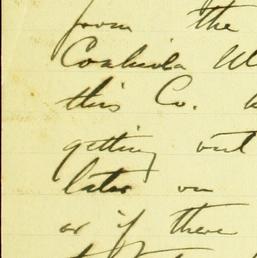 from the
Coahuila
this Co.
getting out
later on
or if there